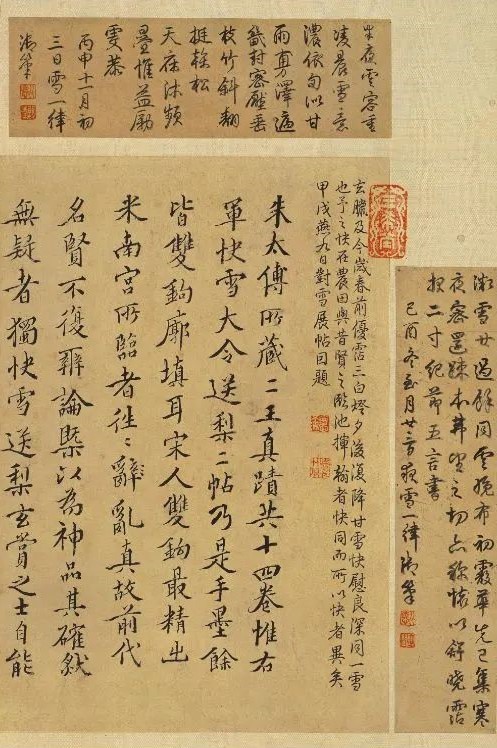 半夜雲容重
凌晨雪意
濃依旬似甘
雨旁澤遍
畿封密壓垂
枝竹斜翻
挺榦松
天庥沐頻
疊惟益勵
恭
丙申十一月初
三日雪一律
御筆
玄臘及今歲春前優霑三白燈夕後復降甘雪快慰良深同一雪
也予之快在農田與昔賢之臨池揮翰者快同而所以快者異矣
甲戌燕九日對雪展帖因題
朱太傅所藏二王真蹟共十四卷惟右
軍快雪大令送梨二帖乃是手墨餘
皆雙鉤廓填耳宋人雙鉤最精出
米南宮所臨者往〻輙亂真故前代
名賢不復辨論槩以為神品其確然
無疑者獨快雪送梨玄賞之士自能
雪廿過餘同雲晚布初霰華先已集寒
夜密還疎本弗望之切亦殊懷以舒曉霑
報二寸紀節五言書
己酉冬至月廿二日夜雪一律御筆